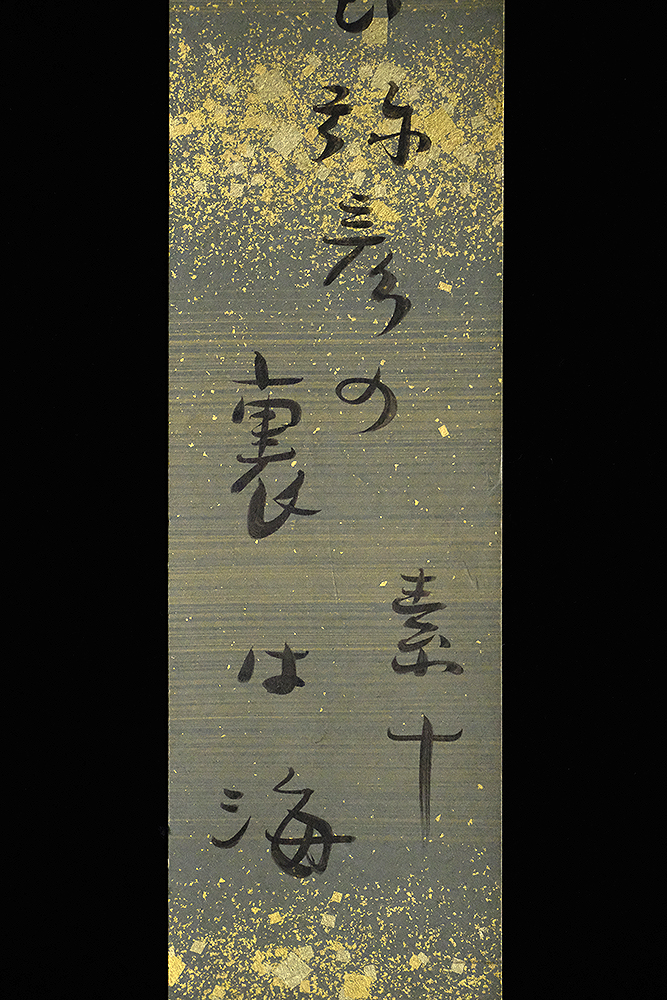 弥彦の
裏は海
素十